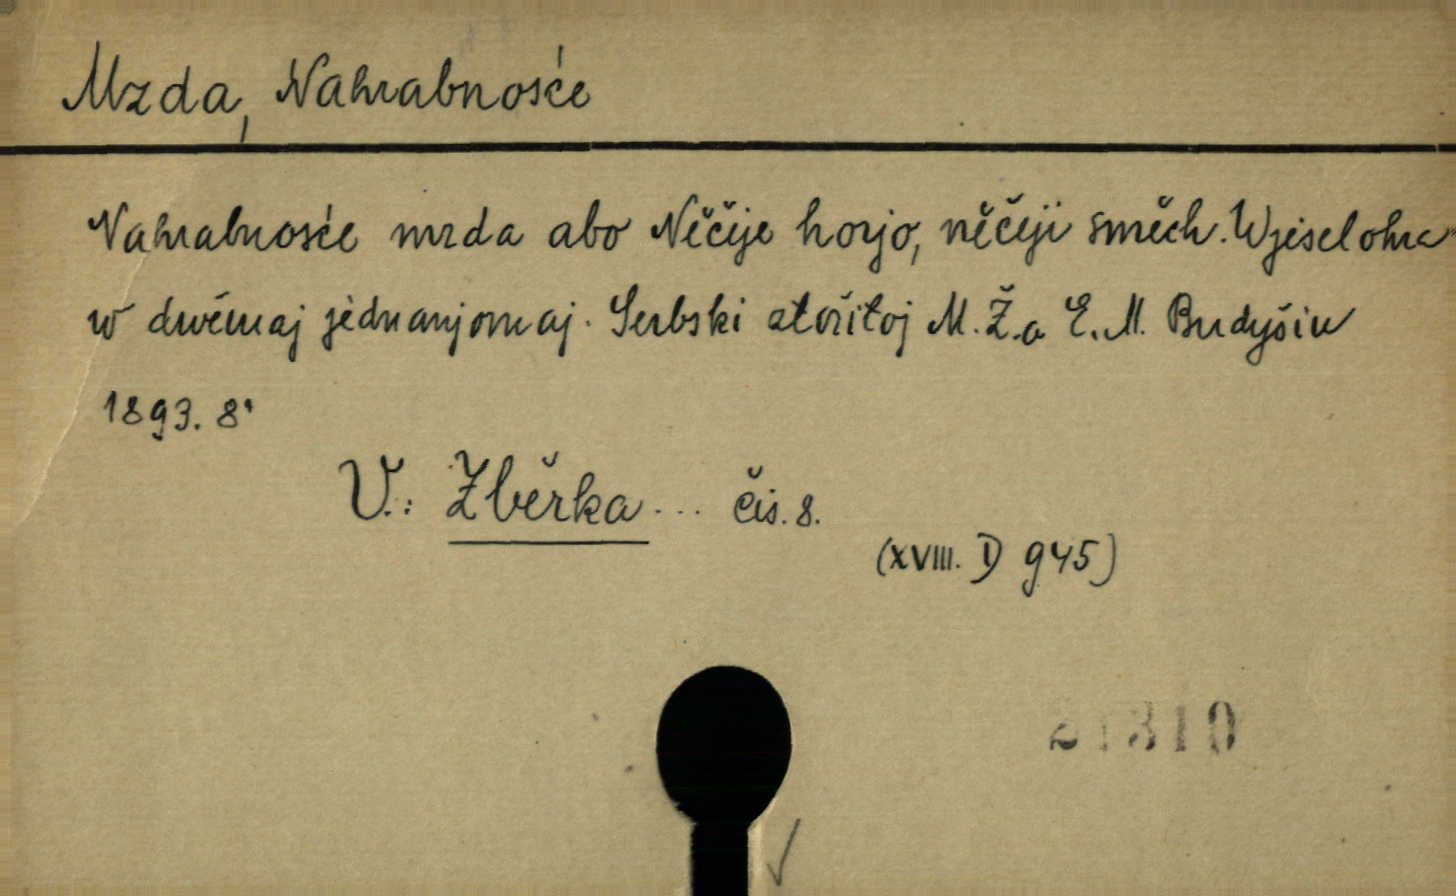 Mzda, Nahrabnosće
Nahrabnosće mzda abo Něčije horjo, něčeji směch. Wjeselohra
w dwěmaj jednanjomaj. Serbski stořitoj M. Ž. a E. M. Budyšin
1893. 8°
V.: Zběrka ... čis. 8.
(XVIII. D 945)
21310